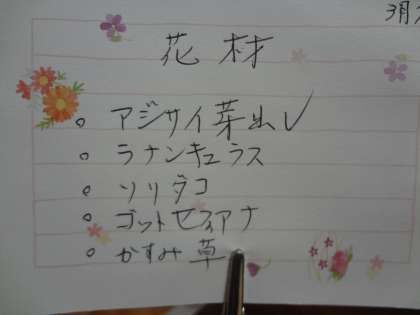 3月
花材
○ アジサイ芽出し
○ ラナンキュラス
○ ソリダコ
○ ゴットセフィアナ
○ かすみ草